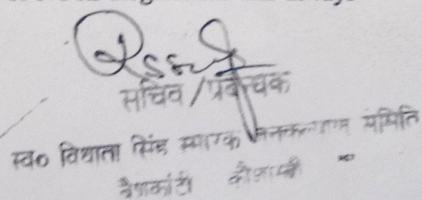 सचिव/प्रबन्धक
स्व० विधाता सिंह स्मारक जनकल्याण समिति
कौशाम्बी